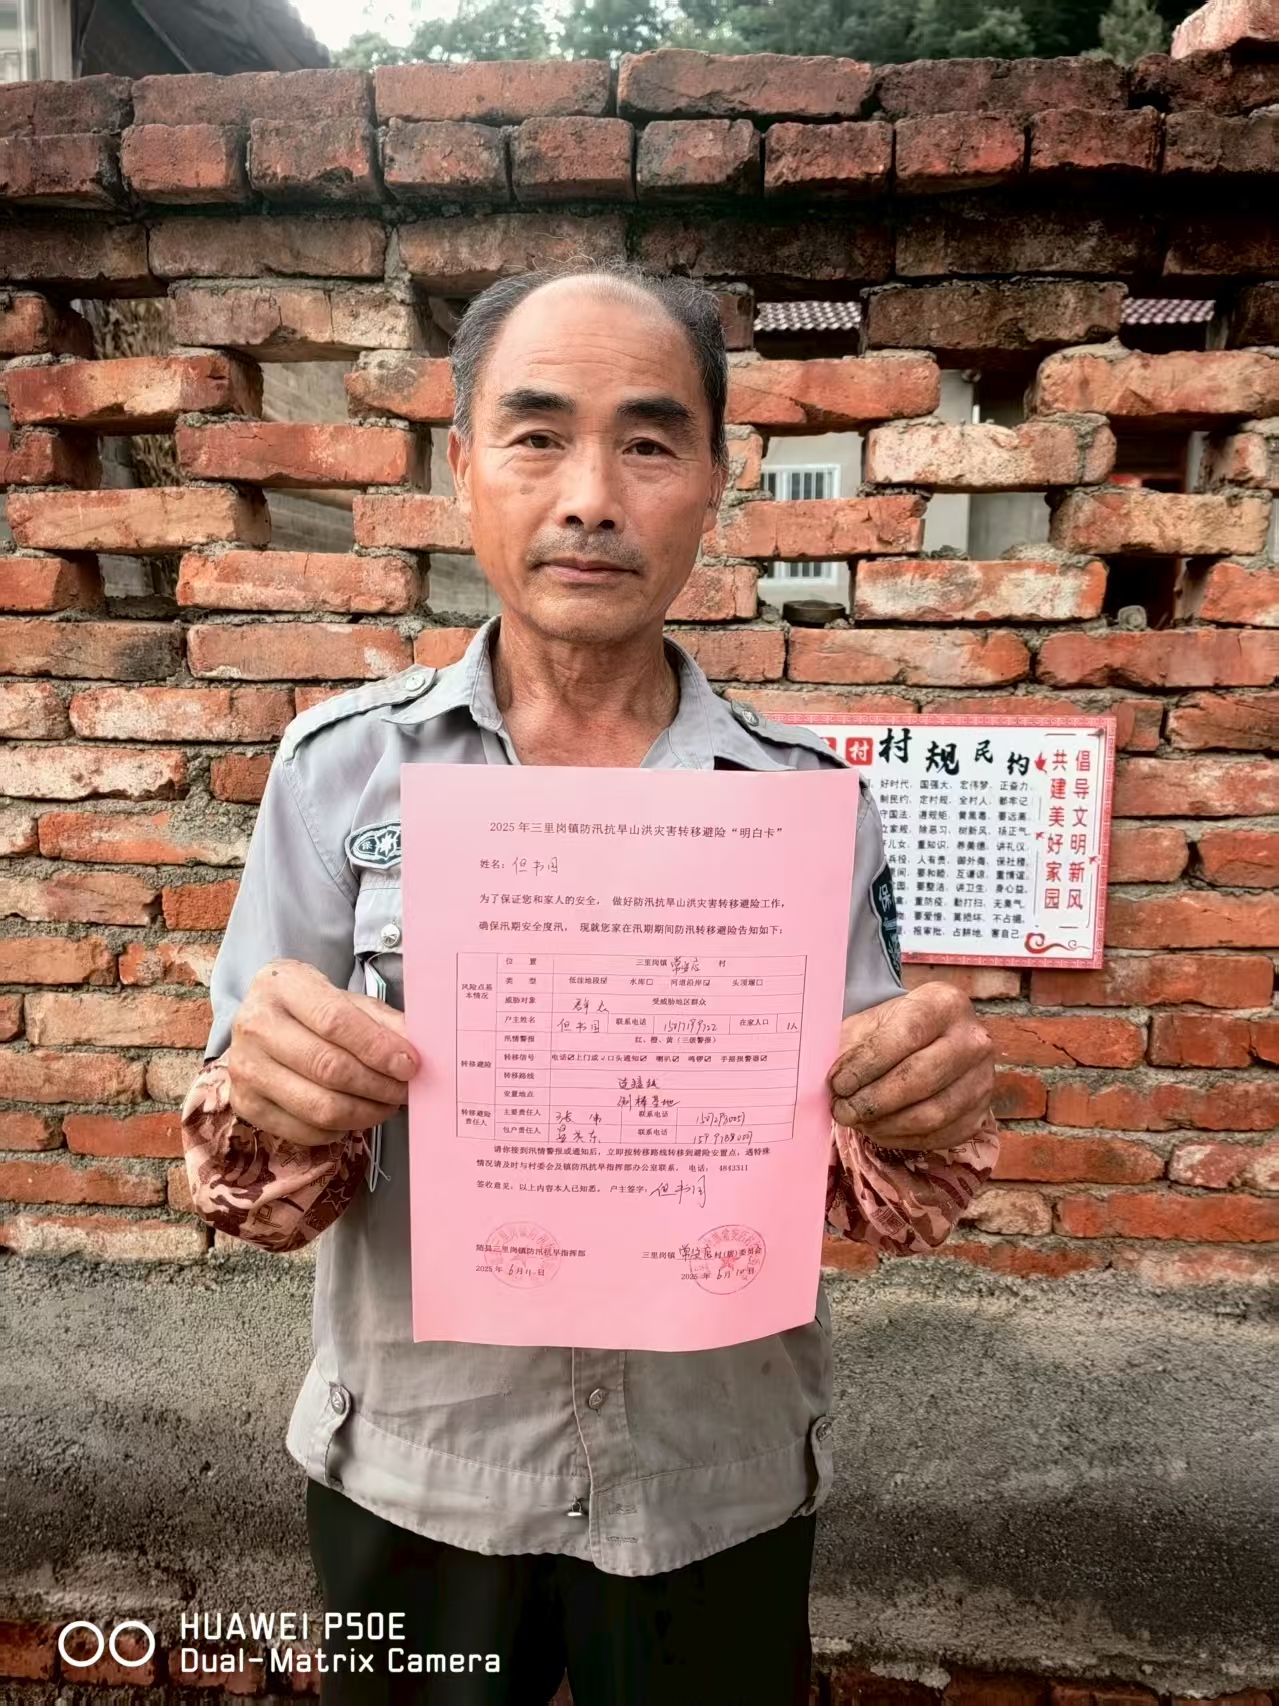 村村规民约
好时代、国强大、宏伟梦、正奋力、
制民约、定村规、全村人、都牢记、
守国法、遵规矩、黄黑毒、要远离、
立家规、除恶习、树新风、扬正气、
儿女、重知识、养美德、讲礼仪、
兵役、人有责、御外侮、保社稷、
里间、要和睦、互谦谅、重情谊、
要整洁、讲卫生、身心益、
重防疫、勤打扫、无臭气、
要爱惜、莫损坏、不占据、
报审批、占耕地、害自己、
倡导文明新风
共建美好家园
保
保
2025年三里岗镇防汛抗旱山洪灾害转移避险“明白卡”
姓名：但书国
为了保证您和家人的安全，做好防汛抗旱山洪灾害转移避险工作，
确保汛期安全度汛，现就您家在汛期期间防汛转移避险告知如下：
风险点基本情况
位 置 三里岗镇 常安店 村
类 型 低洼地段☑ 水库□ 河道沿岸☑ 头顶堰□
威胁对象 群众 受威胁地区群众
户主姓名 但书国 联系电话 在家人口 1人
转移避险
汛情警报 红、橙、黄（三级警报）
转移信号 电话☑上门或√口头通知☑ 喇叭☑ 鸣锣☑ 手摇报警器☑
转移路线
安置地点 基地
转移避险责任人
主要责任人 张 联系电话
包户责任人 东 联系电话
请你接到汛情警报或通知后，立即按转移路线转移到避险安置点，遇特殊
情况请及时与村委会及镇防汛抗旱指挥部办公室联系。电话：4843311
签收意见：以上内容本人已知悉。 户主签字：但书国
随县三里岗镇防汛抗旱指挥部 三里岗镇 常安店 村（居）委员会
2025年6月11日 2025年6月10日
HUAWEI P50E
Dual-Matrix Camera